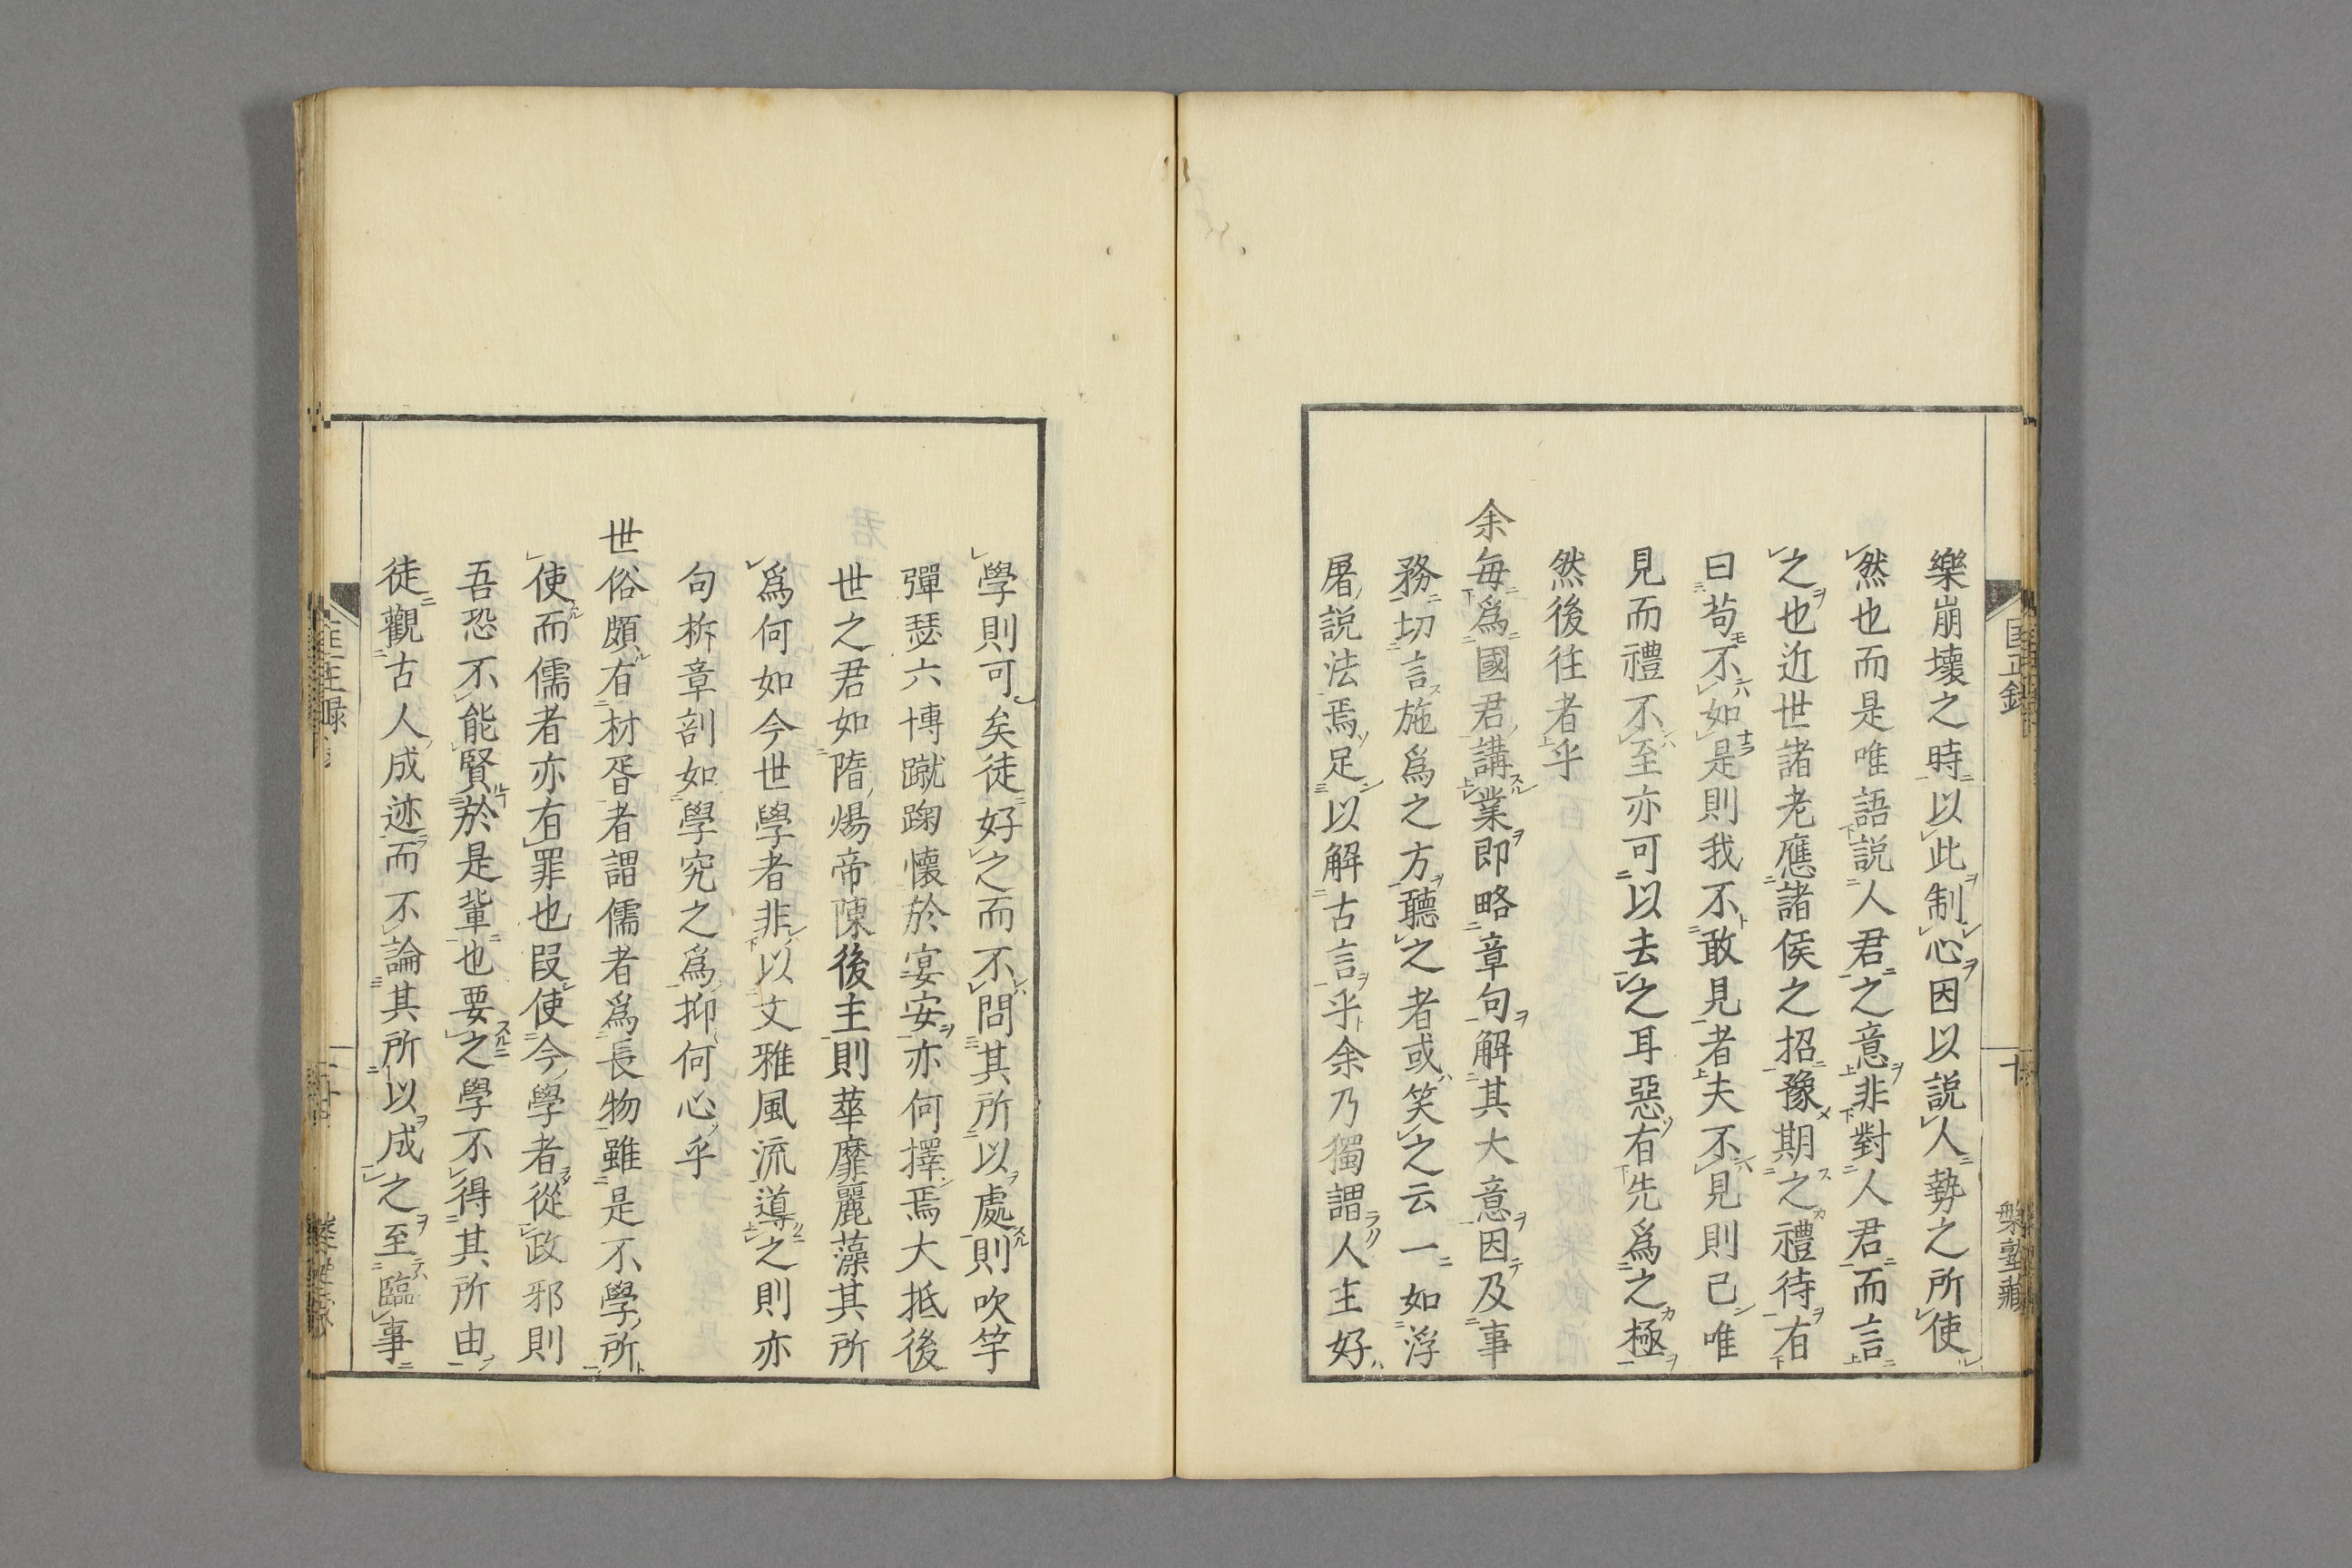 樂崩壞之時以此制心因以説人勢之所使
然也而是唯語説人君之意非對人君而言
之也近世諸老應諸侯之招豫期之禮待有
曰苟不如是則我不敢見者夫不見則已唯
見而禮不至亦可以去之耳惡有先爲之極
然後往者乎
余毎爲國君講業即略章句解其大意因及事
務切言施爲之方聽之者或笑之云一如浮
屠説法焉足以解古言乎余乃獨謂人主好
學則可矣徒好之而不問其所以處則吹竽
彈瑟六博蹴鞠懷於宴安亦何擇焉大抵後
世之君如隋煬帝陳後主則華靡麗藻其所
爲何如今世學者非以文雅風流導之則亦
句柝章剖如學究之爲抑何心乎
世俗頗有材胥者謂儒者爲長物雖是不學所
使而儒者亦有罪也叚使今學者從政邪則
吾恐不能賢於是輩也要之學不得其所由
徒觀古人成迹而不論其所以成之至臨事
匡正録
十
槃塾藏